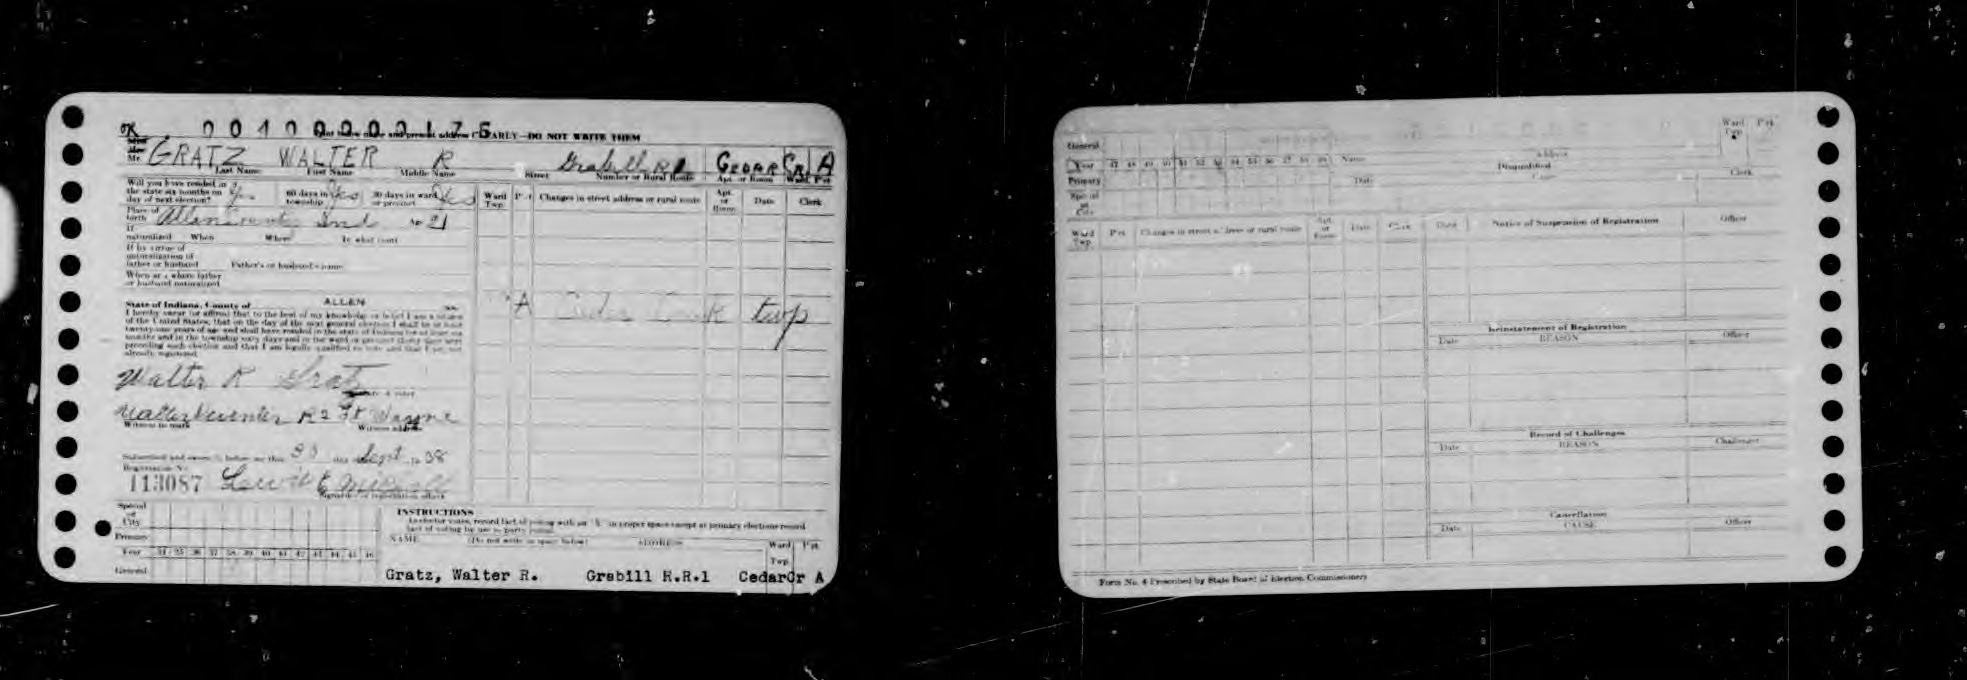 OK 00400000175
name and present address CLEARLY—DO NOT WRITE THEM
Miss
Mrs.
Mr. GRATZ WALTER R Grabill R 1 CEDAR CR A
Last Name First Name Middle Name Street Number or Rural Route Apt. or Room Ward Pct.
Will you have resided in the state six months on day of next election? Yes 60 days in township Yes 30 days in ward or precinct Yes
Ward Twp. Pct Changes in street address or rural route Apt. or Room Date Clerk
Place of birth Allen County Ind Age 21
If naturalized When Where In what court
If by virtue of naturalization of father or husband Father's or husband's name
When and where father or husband naturalized
State of Indiana, County of ALLEN ss.
I hereby swear (or affirm) that to the best of my knowledge or belief I am a citizen
of the United States, that on the day of the next general election I shall be at least
twenty-one years of age and shall have resided in the state of Indiana for at least six
months and in the township sixty days and in the ward or precinct thirty days next
preceding such election and that I am legally qualified to vote and that I am not
already registered.
A Cedar Creek twp
Walter R Gratz
Signature of voter
R 2 Ft Wayne
Witness to mark Witness address
Subscribed and sworn to before me this day Sept 1938
Registration No.
113087
Signature of registration officer
Special or City
Primary
Year 34 35 36 37 38 39 40 41 42 43 44 45 46
General
INSTRUCTIONS
Inspector votes, record fact of voting with an "X" in proper space except at primary elections record
fact of voting by use of party initial.
NAME (Do not write in space below) ADDRESS Ward Twp. Pct.
Gratz, Walter R. Grabill R.R.1 CedarCr A
General
Year 47 48 49 50 51 52 53 54 55 56 57 58 59
Primary
Special or City
Name Address Ward Twp. Pct.
Disqualified
Date Cause Clerk
Ward Twp. Pct. Changes in street address or rural route Apt. or Room Date Clerk
Date Notice of Suspension of Registration Officer
Reinstatement of Registration
Date REASON Officer
Record of Challenges
Date REASON Challenger
Cancellation
Date CAUSE Officer
Form No. 4 Prescribed by State Board of Election Commissioners